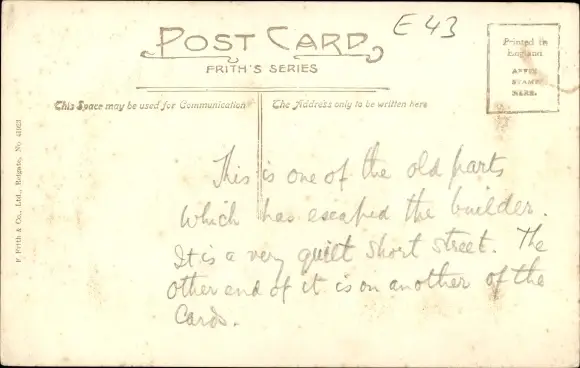 E 43
POST CARD
FRITH'S SERIES
Printed in
England
AFFIX
STAMP
HERE.
This Space may be used for Communication
The Address only to be written here
F. Frith & Co., Ltd., Reigate, No
This is one of the old parts
which has escaped the builder.
It is a very quiet short street. The
other end of it is on another of the
Cards.